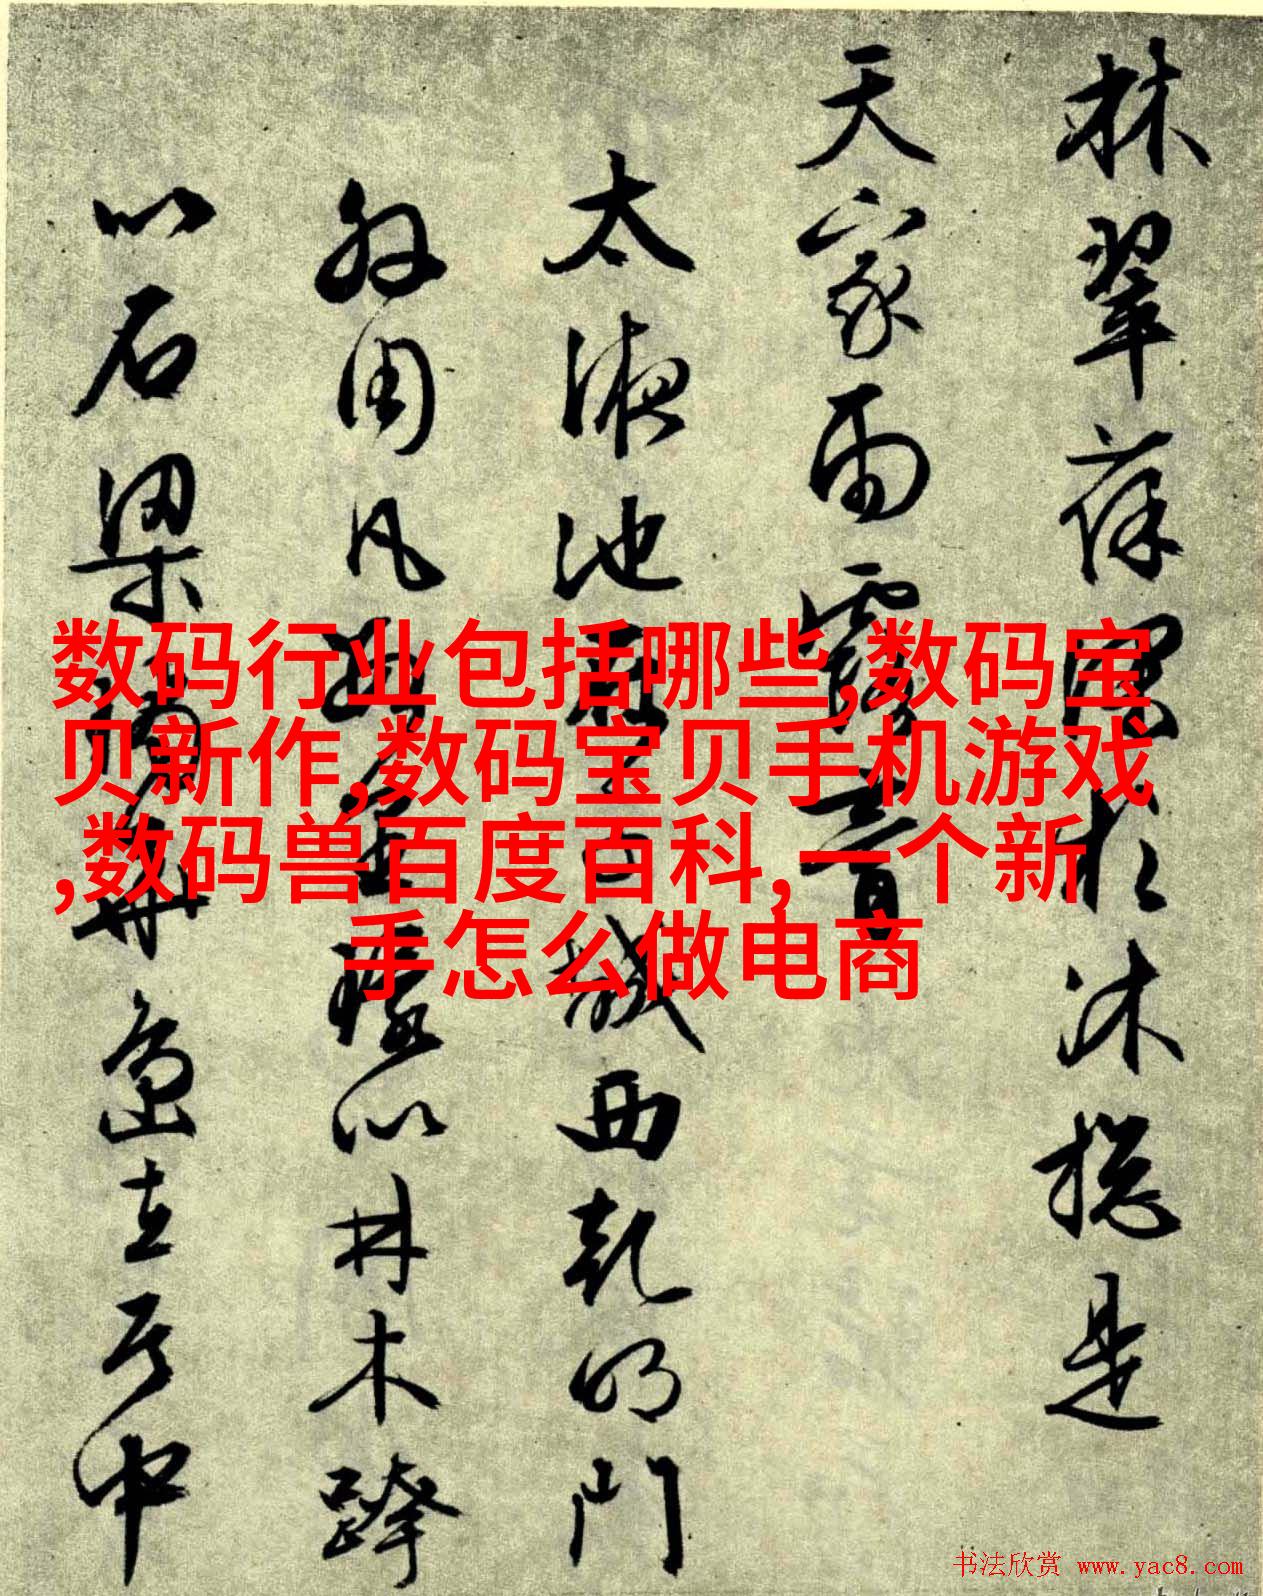 林翠葆深於沐總是
天家雨露
太液池 城西乾明門
周凡 以 木跨
以石梁 島立其中
数码行业包括哪些,数码宝
贝新作,数码宝贝手机游戏
,数码兽百度百科,一个新
手怎么做电商
书法欣赏 www.yac8.com